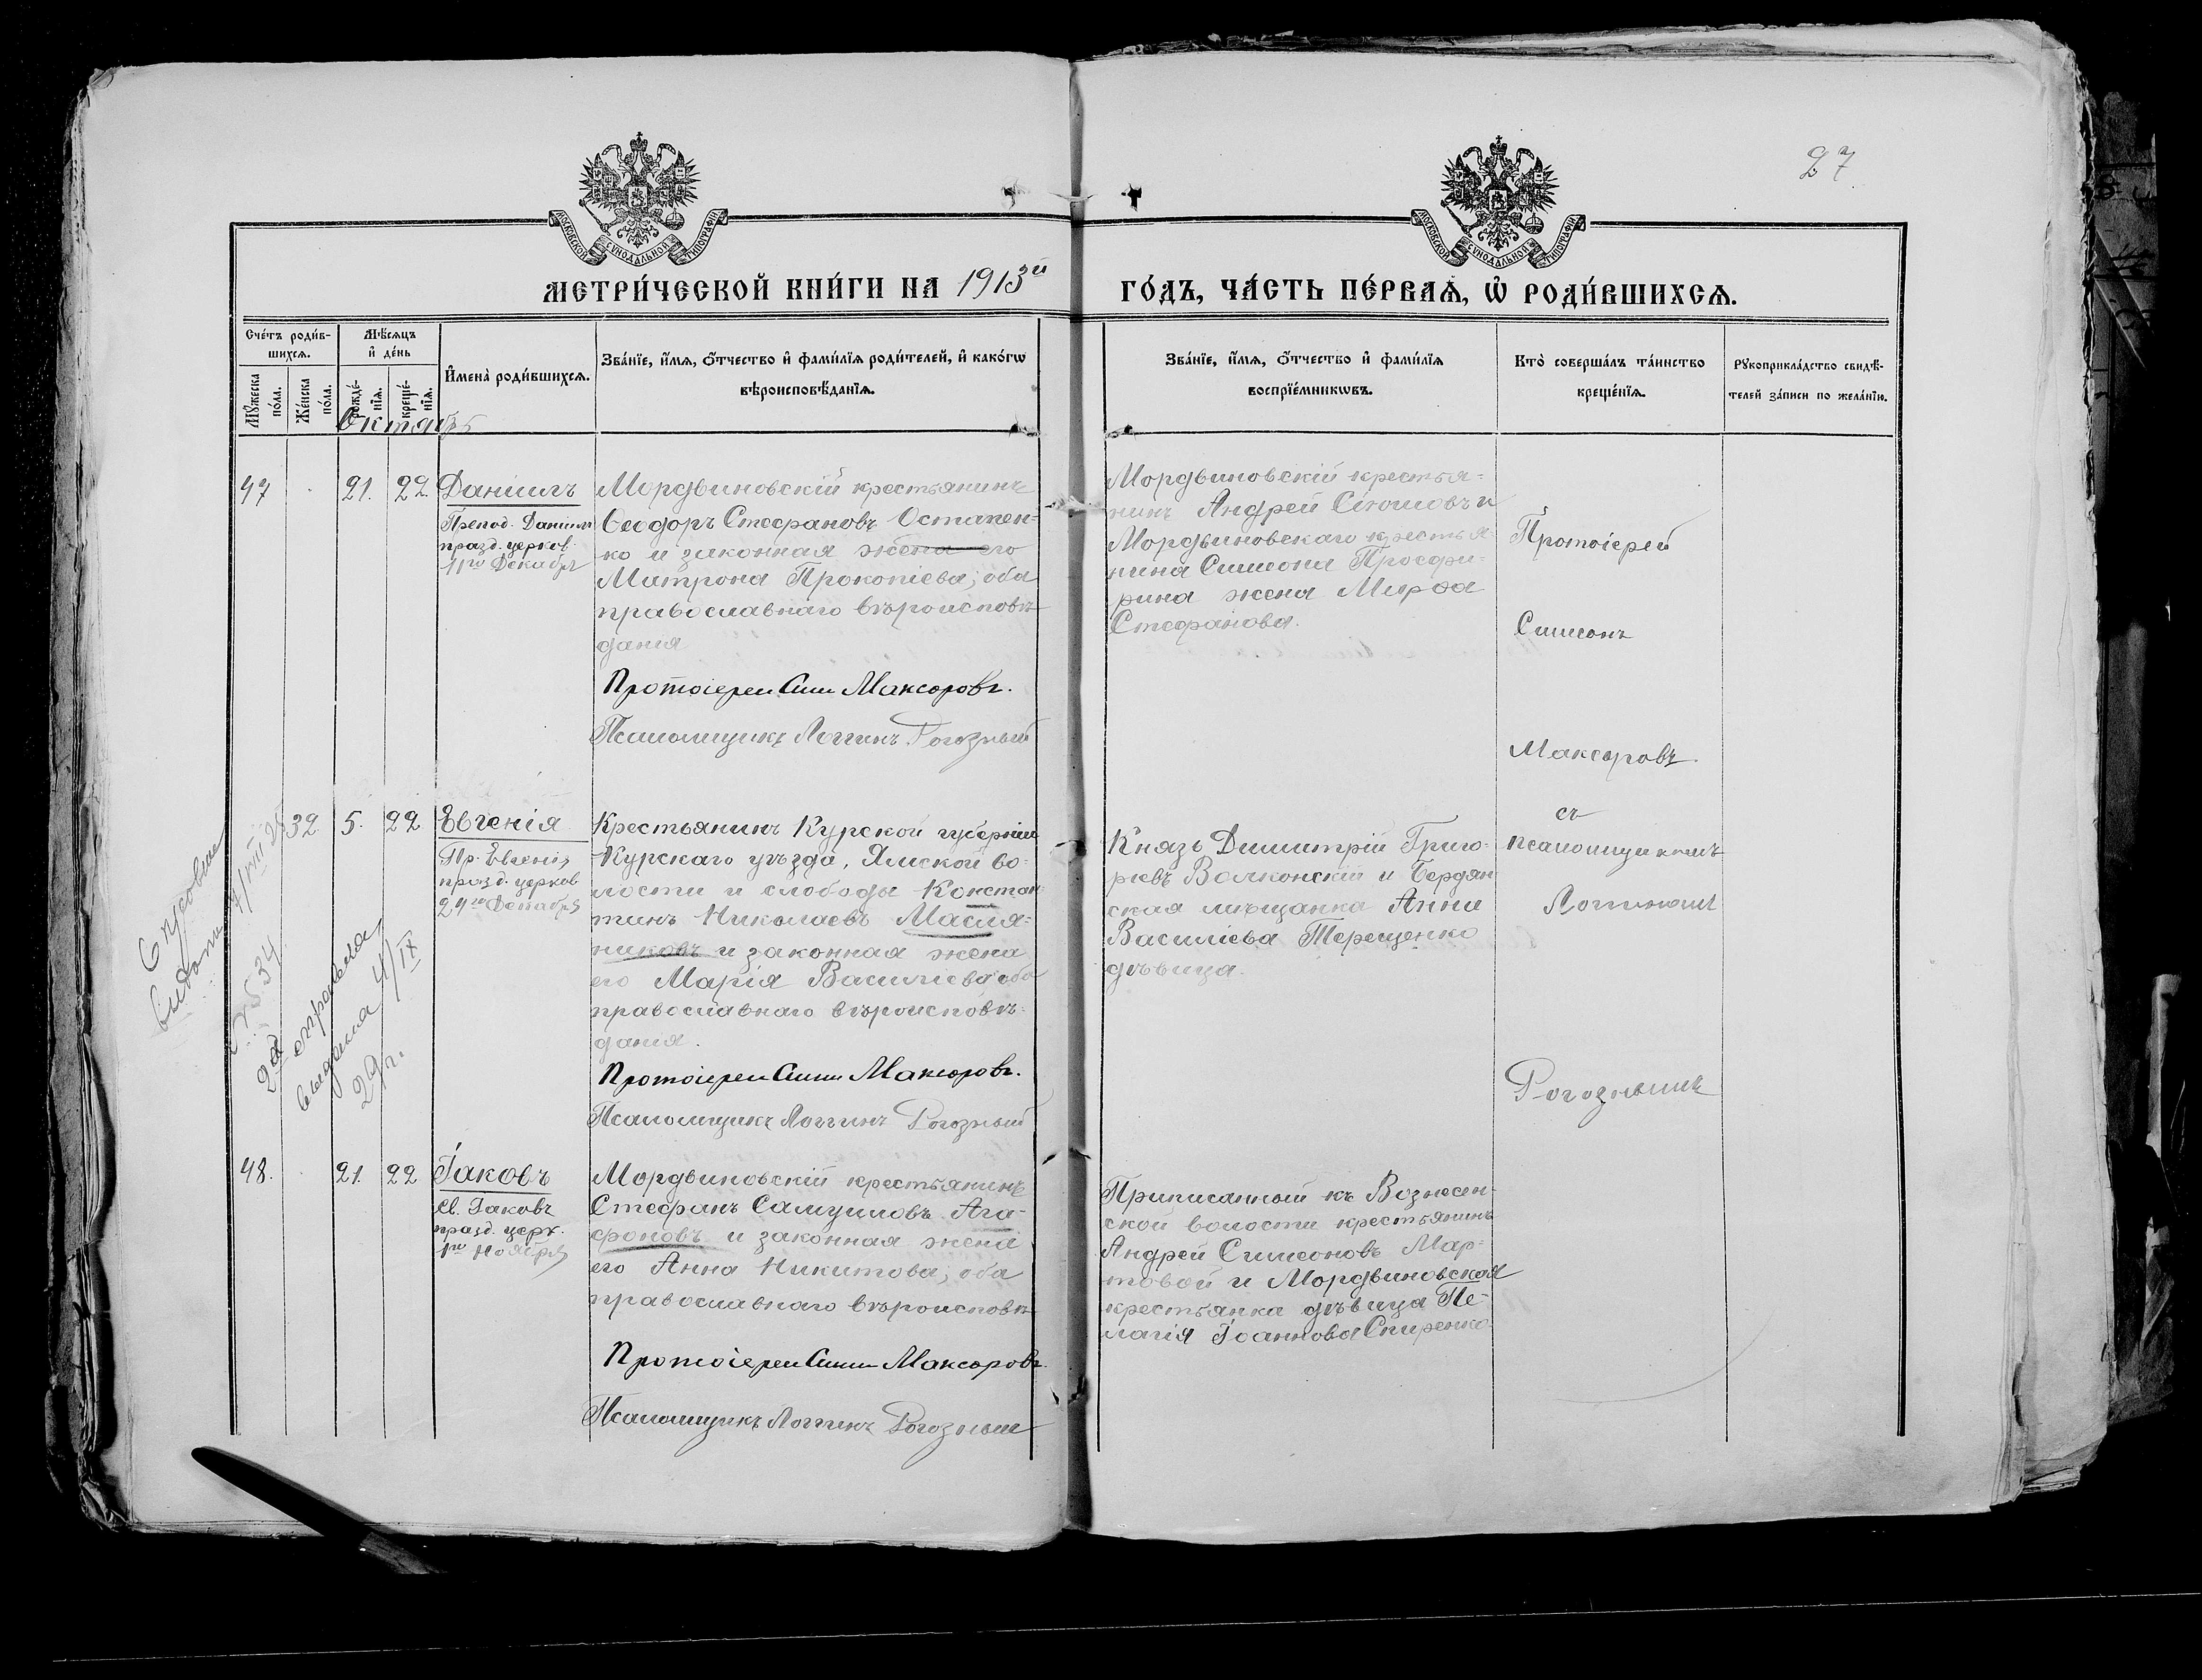 27
МОСКОВСКОЙ СѴНОДАЛЬНОЙ ТИПОГРАФІИ
МОСКОВСКОЙ СѴНОДАЛЬНОЙ ТИПОГРАФІИ
МЕТРИ́ЧЕСКОЙ КНИ́ГИ НА 1913й
ГО́ДЪ, ЧА́СТЬ ПЕ́РВАѦ, Ѡ҆ РОДИ́ВШИХСѦ.
Сче́тъ роди́в-
шихсѧ.
Мꙋ́жеска по́ла.
Же́нска по́ла.
Мѣ́сѧцъ
и҆ де́нь
рожде́-нїѧ.
креще́-нїѧ.
И҆мена̀ роди́вшихсѧ.
Зва́нїе, и҆́мѧ, ѻ҆́тчество и҆ фами́лїѧ роди́телей, и҆ како́гѡ
вѣроисповѣ́данїѧ.
Зва́нїе, и҆́мѧ, ѻ҆́тчество и҆ фами́лїѧ
воспрїе́мникѡвъ.
Кто̀ соверша́лъ та́инство
креще́нїѧ.
Рꙋкоприкла́дство свидѣ́-
телей за́писи по жела́нїю.
Октябрь
47
21.
22
Даніилъ
Препод. Даніила
празд. церков.
11го Декабря
Мордвиновскій крестьянинъ
Ѳеодоръ Стефановъ Остапен-
ко и законная жена его
Матрона Прокопіева, оба
православнаго вѣроисповѣ-
данія
Протоіерей Сим Максоровъ.
Псаломщикъ Логгинъ Рогозный
Мордвиновскій крестья-
нинъ Андрей и
Мордвиновскаго крестья-
нина Симеона
жена Марѳа
Стефанова.
Протоіерей
Симеонъ
Максоровъ.
32
5.
22
Евгенія
Пр. Евгенія
празд. церков
24го Декабря
Крестьянинъ Курской губерніи
Курскаго уѣзда, Ямской во-
лости и слободы Констан-
тинъ Николаевъ Масля-
никовъ и законная жена
его Марія Василіева, оба
православнаго вѣроисповѣ-
данія.
Протоіерей Сим Максоровъ.
Псаломщикъ Логгинъ Рогозный
Князь Димитрій Григо-
рьевъ Волконскій и Бердян
ская мѣщанка Анна
Василіева Терещенко
дѣвица.
съ
псаломщикомъ
Логгиномъ
Рогознымъ
№ 534
2й
выдана 4/IX
29 г.
48.
21.
22
Іаковъ
м. Іаковъ
празд. церк.
1го Ноября
Мордвиновскій крестьянинъ
Стефанъ Самуиловъ Ага-
фоновъ и законная жена
его Анна Никитова, оба
православнаго вѣроисповѣ-
Протоіерей Сим Максоровъ.
Псаломщикъ Логгинъ Рогозный
Приписанный къ Вознесен-
ской волости крестьянинъ
Андрей Симеоновъ Мар-
товой и Мордвиновская
крестьянка дѣвица Пе-
лагія Іоаннова Скиренко